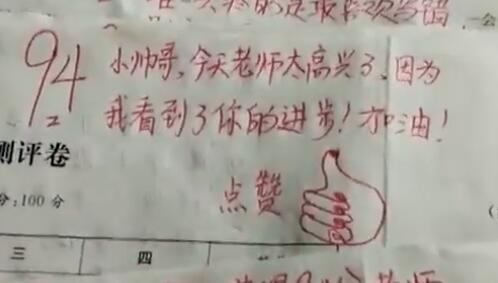 94
小帅哥,今天老师太高兴了,因为
我看到了你的进步!加油!
测评卷
点赞
分:100 分
三 四